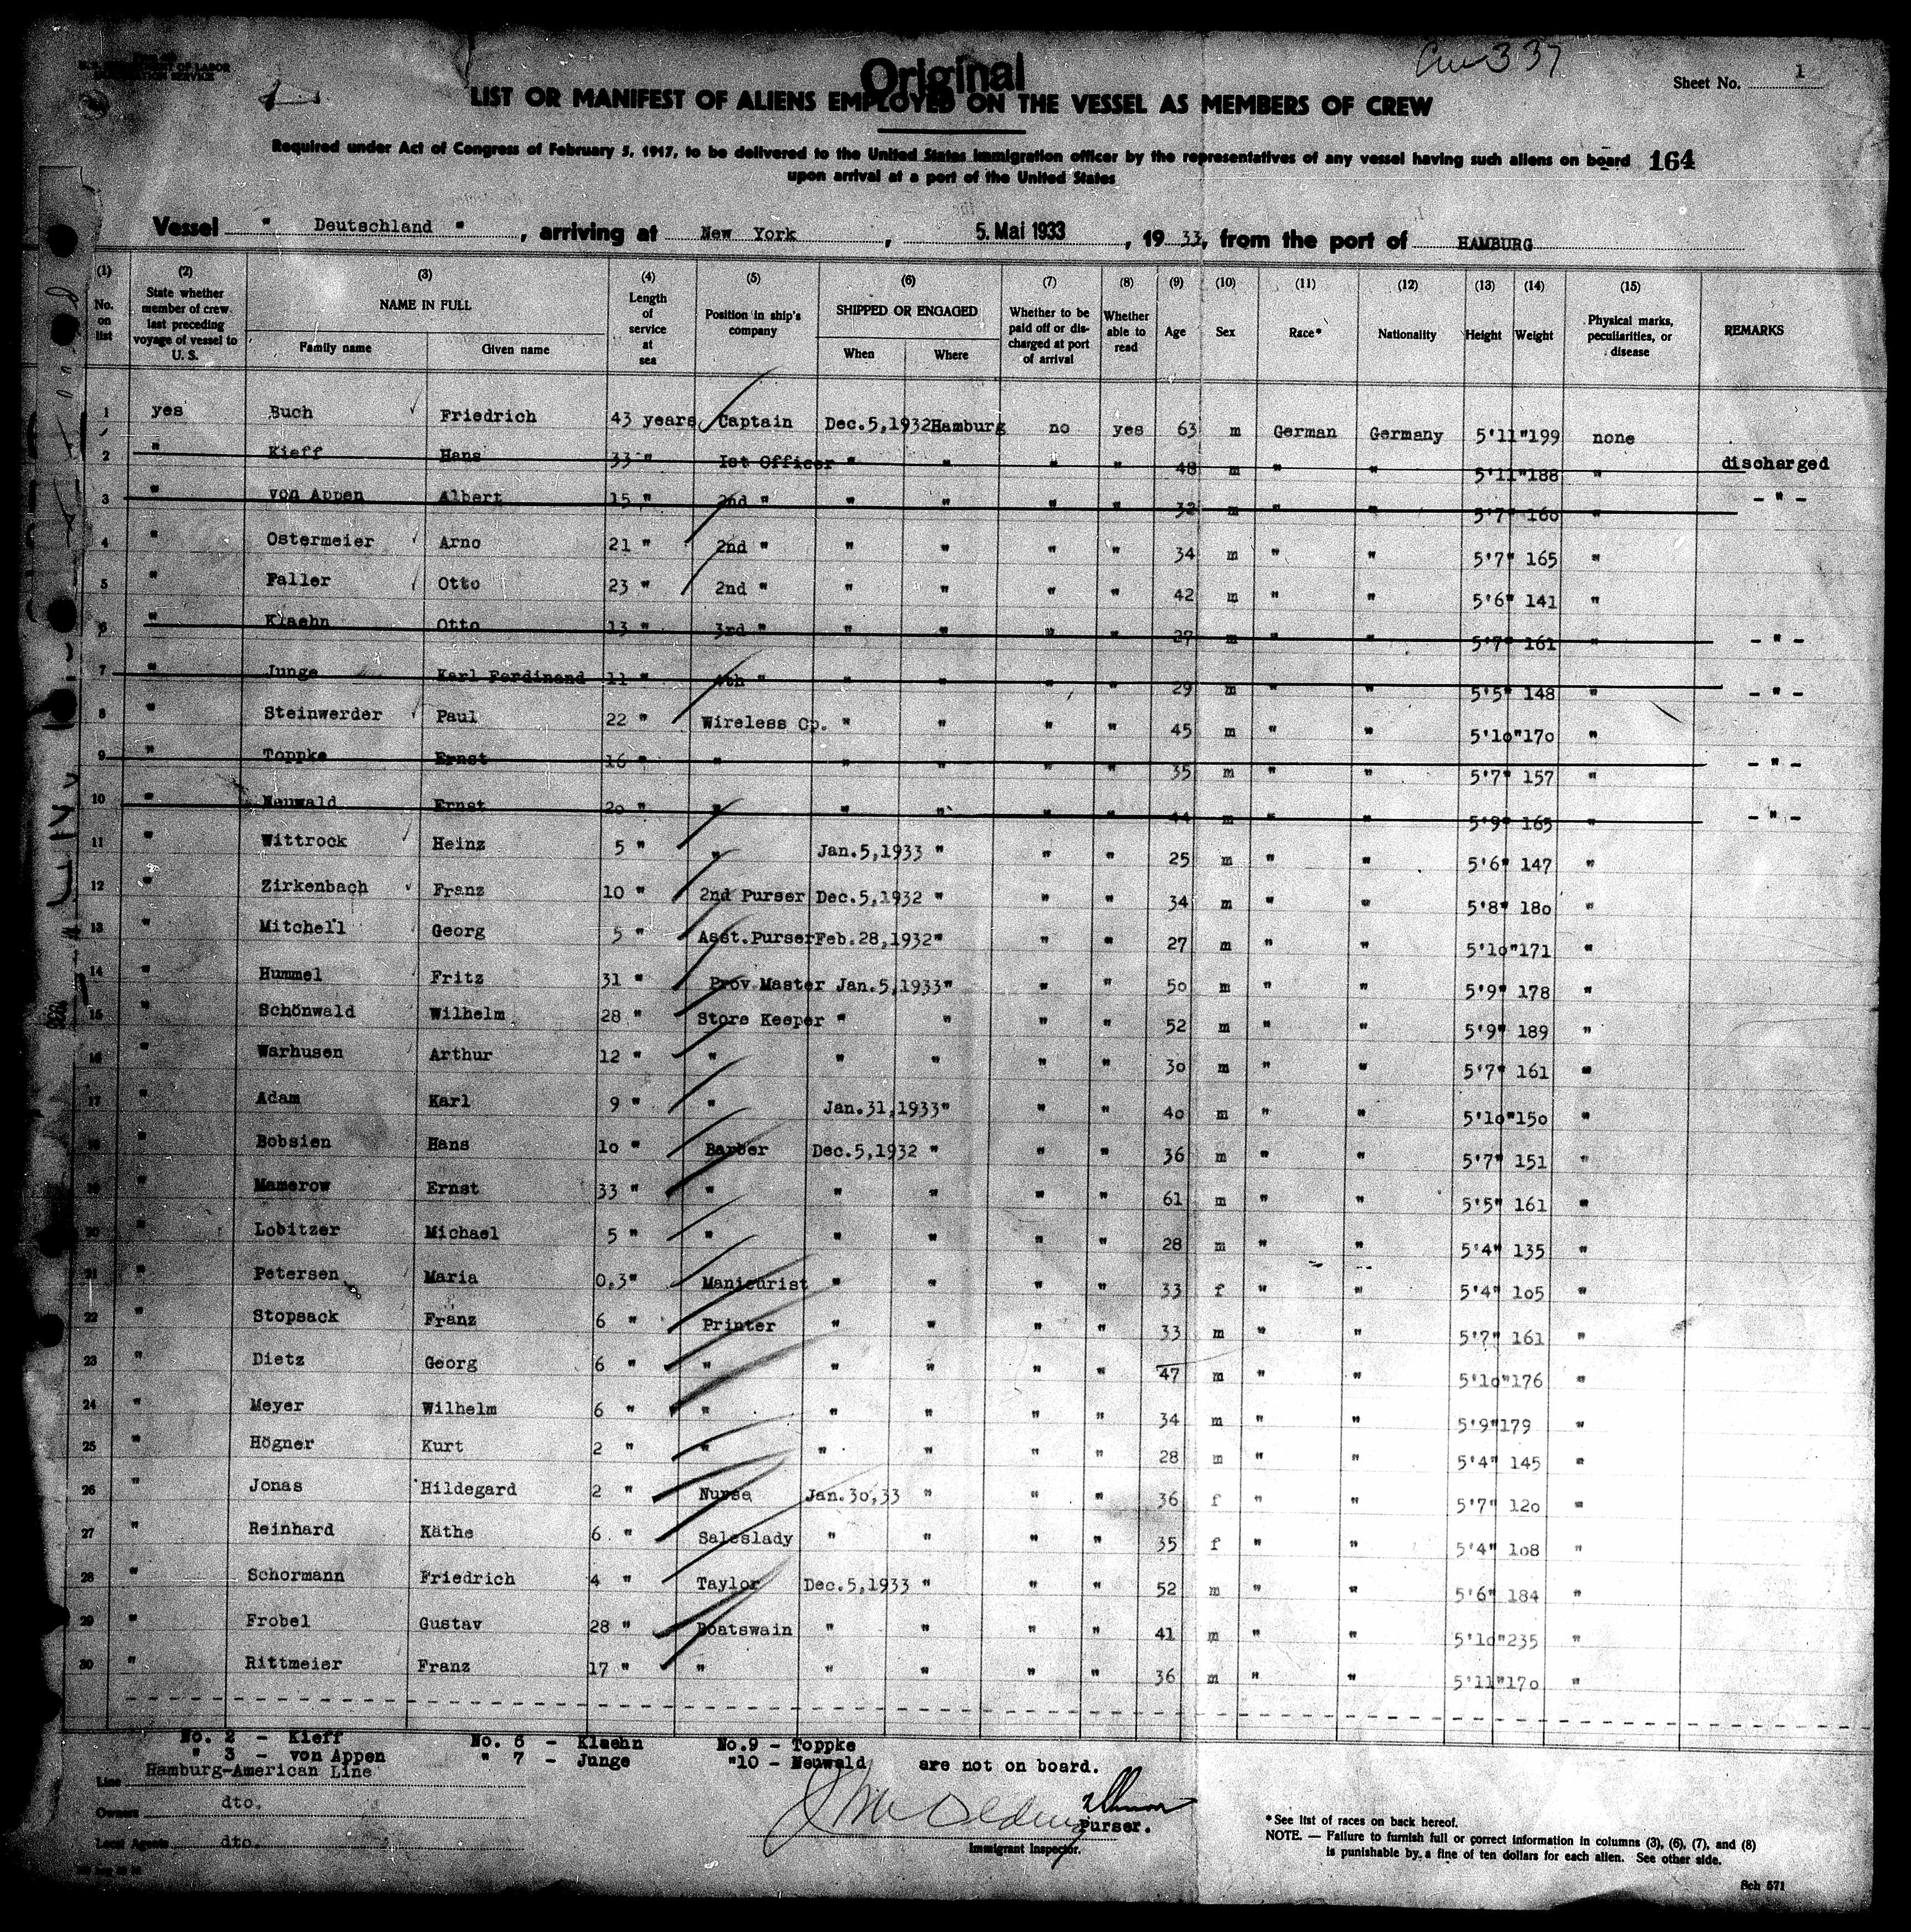 U.S. DEPARTMENT OF LABOR
IMMIGRATION SERVICE
Original
337
Sheet No. 1
LIST OR MANIFEST OF ALIENS EMPLOYED ON THE VESSEL AS MEMBERS OF CREW
Required under Act of Congress of February 5, 1917, to be delivered to the United States immigration officer by the representatives of any vessel having such aliens on board 164
upon arrival at a port of the United States
Vessel " Deutschland ", arriving at New York, 5. Mai 1933, 19 33, from the port of HAMBURG
(1) (2) (3) (4) (5) (6) (7) (8) (9) (10) (11) (12) (13) (14) (15)
No. on list | State whether member of crew last preceding voyage of vessel to U. S. | NAME IN FULL Family name Given name | Length of service at sea | Position in ship's company | SHIPPED OR ENGAGED When Where | Whether to be paid off or discharged at port of arrival | Whether able to read | Age | Sex | Race* | Nationality | Height | Weight | Physical marks, peculiarities, or disease | REMARKS
1 yes Buch Friedrich 43 years Captain Dec.5,1932 Hamburg no yes 63 m German Germany 5'11" 199 none
2 " Kieff Hans 33 " Ist Officer " " " " 48 m " " 5'11" 188 " discharged
3 " von Appen Albert 15 " 2nd " " " " " 32 m " " 5'7" 160 " - " -
4 " Ostermeier Arno 21 " 2nd " " " " " 34 m " " 5'7" 165 "
5 " Faller Otto 23 " 2nd " " " " " 42 m " " 5'6" 141 "
6 " Klaehn Otto 13 " 3rd " " " " " 27 m " " 5'7" 161 " - " -
7 " Junge Karl Ferdinand 11 " 4th " " " " " 29 m " " 5'5" 148 " - " -
8 " Steinwerder Paul 22 " Wireless Op. " " " " 45 m " " 5'10" 170 "
9 " Toppke Ernst 16 " " " " " " 35 m " " 5'7" 157 " - " -
10 " Neuwald Ernst 20 " " " " " " 44 m " " 5'9" 165 " - " -
11 " Wittrock Heinz 5 " " Jan.5,1933 " " " 25 m " " 5'6" 147 "
12 " Zirkenbach Franz 10 " 2nd Purser Dec.5,1932 " " " 34 m " " 5'8" 180 "
13 " Mitchell Georg 5 " Asst.Purser Feb.28,1932 " " " 27 m " " 5'10" 171 "
14 " Hummel Fritz 31 " Prov Master Jan.5,1933 " " " 50 m " " 5'9" 178 "
15 " Schönwald Wilhelm 28 " Store Keeper " " " " 52 m " " 5'9" 189 "
16 " Warhusen Arthur 12 " " " " " " 30 m " " 5'7" 161 "
17 " Adam Karl 9 " " Jan.31,1933 " " " 40 m " " 5'10" 150 "
18 " Bobsien Hans 10 " Barber Dec.5,1932 " " " 36 m " " 5'7" 151 "
19 " Mamerow Ernst 33 " " " " " " 61 m " " 5'5" 161 "
20 " Lobitzer Michael 5 " " " " " " 28 m " " 5'4" 135 "
21 " Petersen Maria 0,3 " Manicurist " " " " 33 f " " 5'4" 105 "
22 " Stopsack Franz 6 " Printer " " " " 33 m " " 5'7" 161 "
23 " Dietz Georg 6 " " " " " " 47 m " " 5'10" 176 "
24 " Meyer Wilhelm 6 " " " " " " 34 m " " 5'9" 179 "
25 " Högner Kurt 2 " " " " " " 28 m " " 5'4" 145 "
26 " Jonas Hildegard 2 " Nurse Jan.30,33 " " " 36 f " " 5'7" 120 "
27 " Reinhard Käthe 6 " Saleslady " " " " 35 f " " 5'4" 108 "
28 " Schormann Friedrich 4 " Taylor Dec.5,1933 " " " 52 m " " 5'6" 184 "
29 " Frobel Gustav 28 " Boatswain " " " " 41 m " " 5'10" 235 "
30 " Rittmeier Franz 17 " " " " " " 36 m " " 5'11" 170 "
No. 2 - Kieff No. 6 - Klaehn No.9 - Toppke
" 3 - von Appen " 7 - Junge "10 - Neuwald are not on board.
Line Hamburg-American Line
Owners dto.
Local Agents dto.
Purser.
Immigrant Inspector.
*See list of races on back hereof.
NOTE. — Failure to furnish full or correct information in columns (3), (6), (7), and (8)
is punishable by a fine of ten dollars for each alien. See other side.
Sch 571